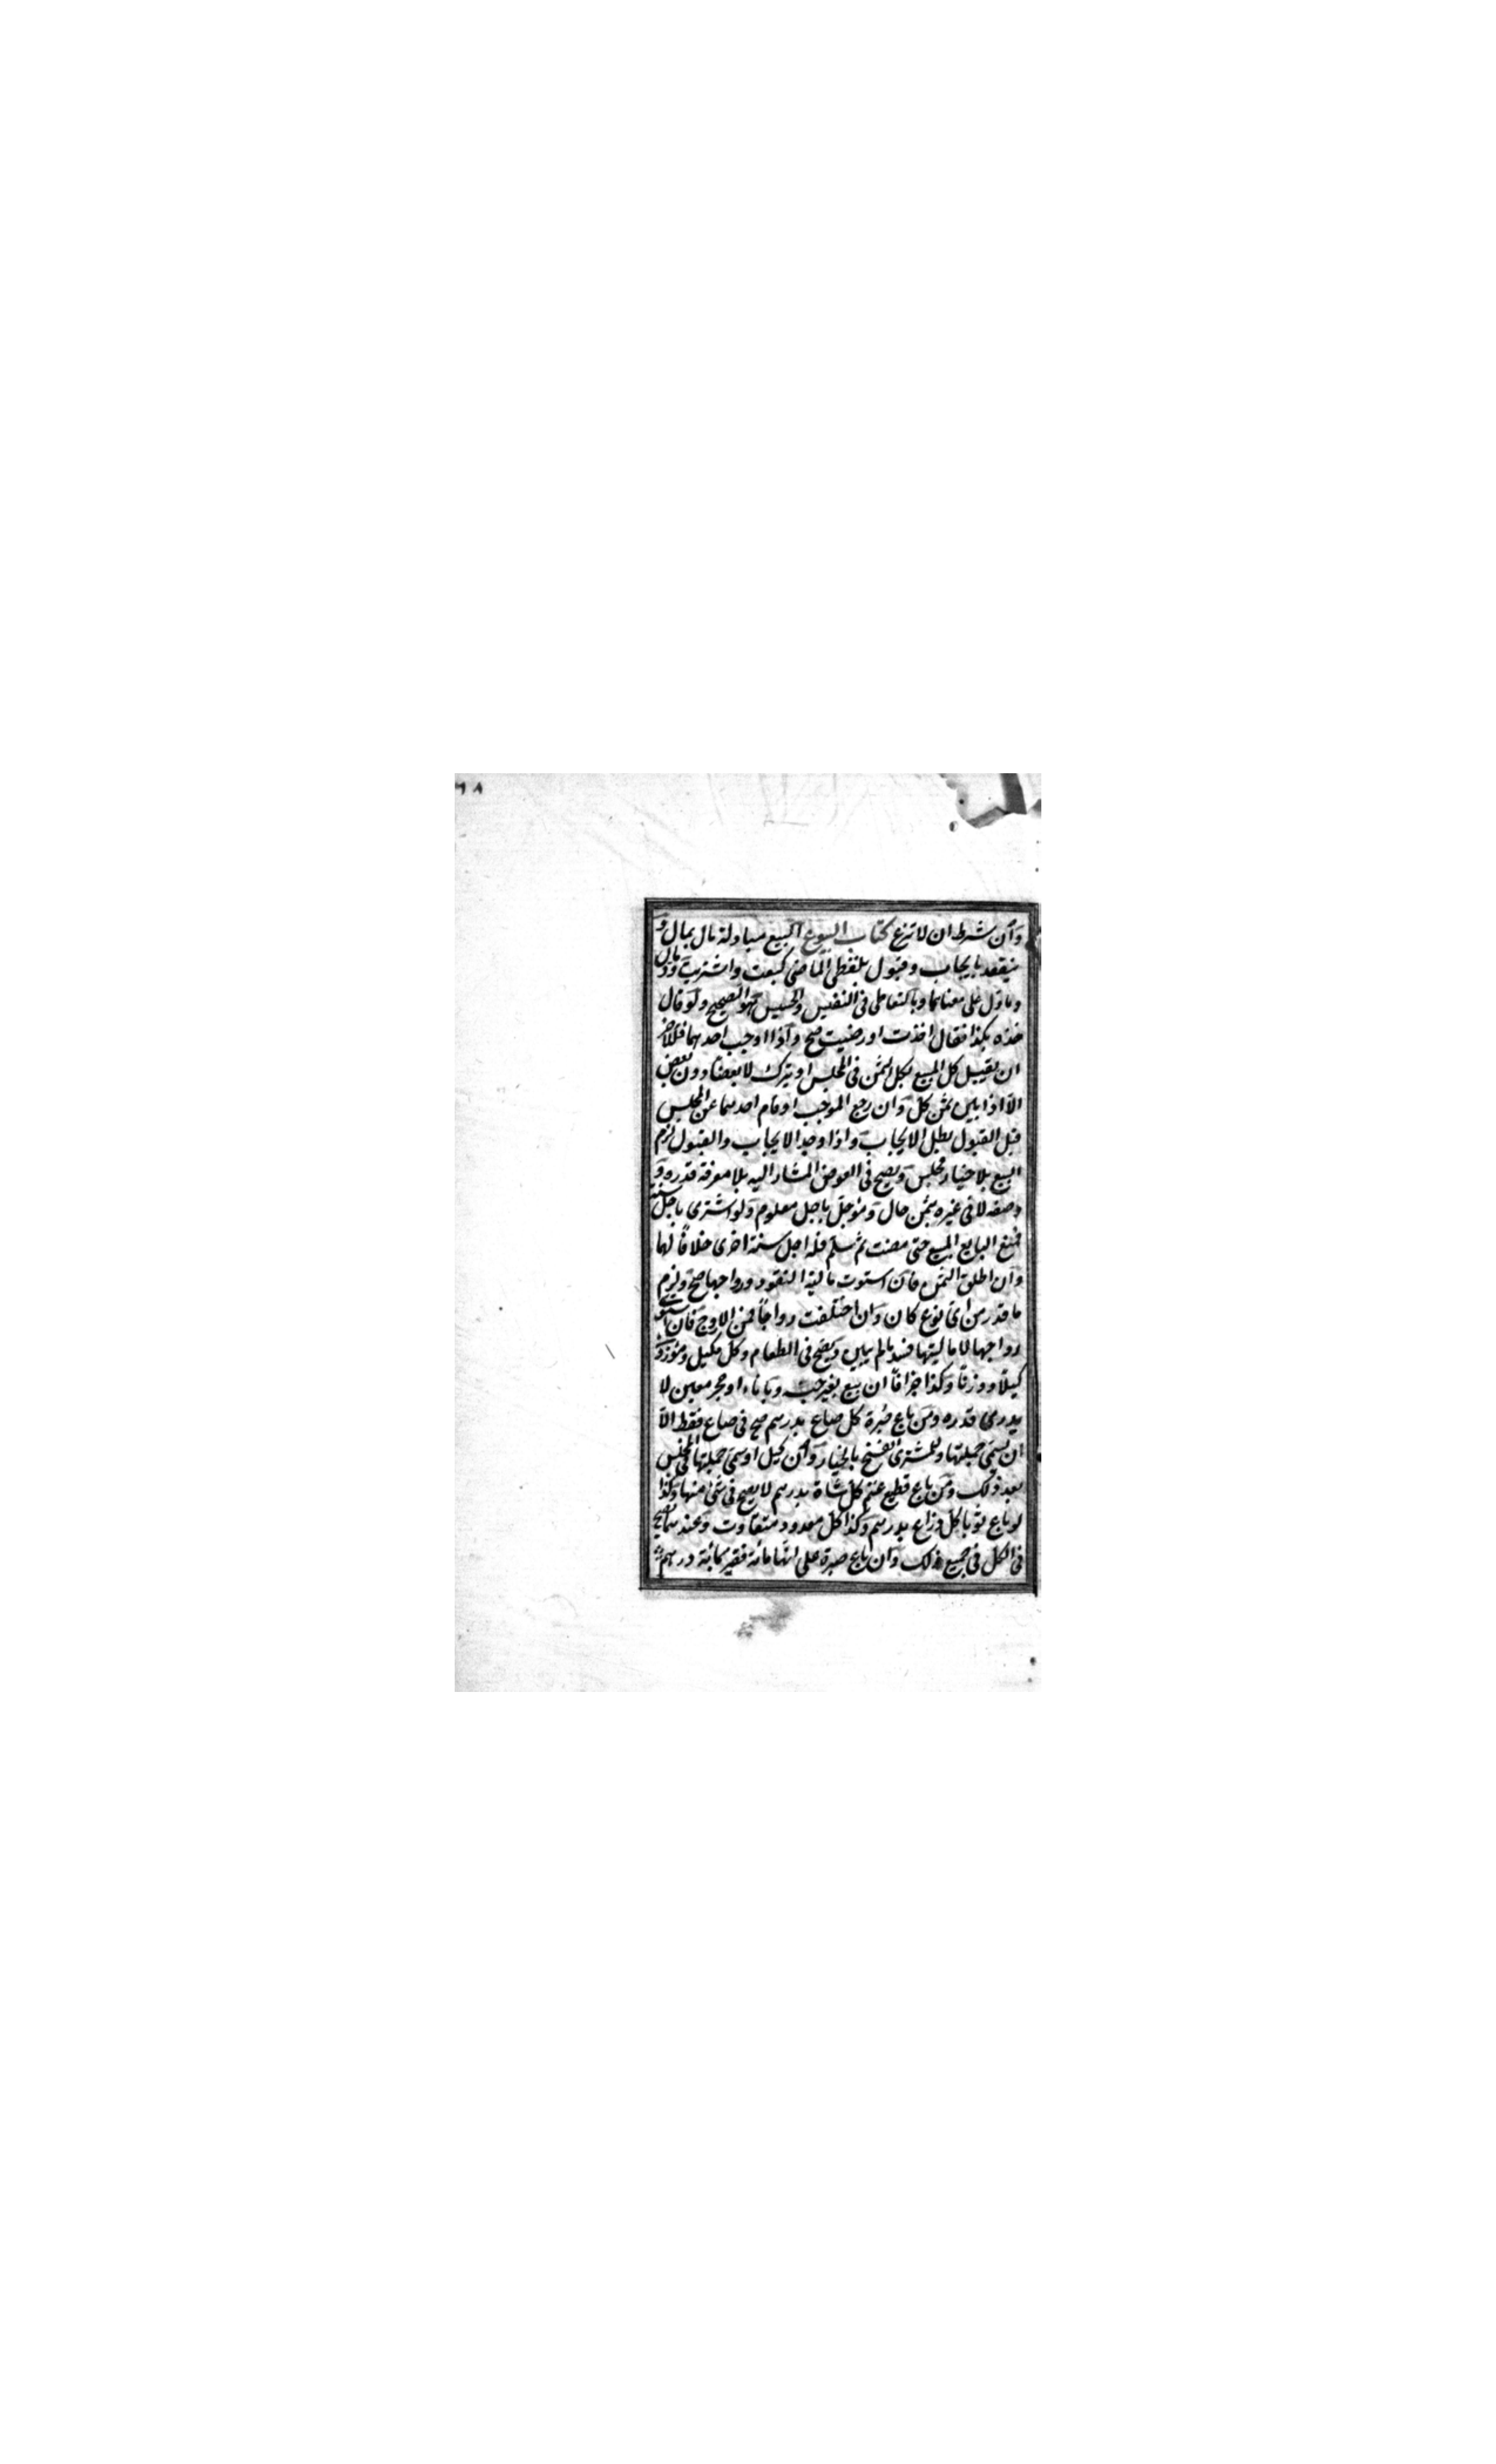 ٩٨
وان شرط ان لا تنزع كتاب البيوع البيع مبادلة مال بمال و
ينعقد بايجاب وقبول بلفظى الماضى كبعت واشتريت
وما دل على معناهما وبالتعاطى فى النفيس والخسيس هو الصحيح ولو قال
خذه بكذا فقال اخذت او رضيت صح واذا اوجب احدهما فللآخر
ان يقبل كل المبيع بكل الثمن فى المجلس او يترك لا بعضا دون بعض
الا اذا بين ثمن كل وان رجع الموجب او قام احدهما عن المجلس
قبل القبول بطل الايجاب واذا وجد الايجاب والقبول لزم
البيع بلا خيار مجلس ويصح فى العوض المشار اليه بلا معرفة قدره و
وصفه لا فى غيره بثمن حال ومؤجل باجل معلوم ولو اشترى باجل سنة
فمنع البايع المبيع حتى مضت ثم سلم فله اجل سنة اخرى خلافا لهما
وان اطلق الثمن فان استوت مالية النقود ورواجها صح ولزم
ما قدر من اى نوع كان وان اختلفت رواجا فمن الاروج فان استوى
رواجها لا ماليتها فسد ما لم يبين ويصح فى الطعام وكل مكيل وموزون
كيلا ووزنا وكذا جزافا ان بيع بغير جنسه وباناء او حجر معين لا
يدرى قدره ومن باع صبرة كل صاع بدرهم صح فى صاع فقط الا
ان يسمى جملتها وللمشترى الفسخ بالخيار وان كيل او سمى جملتها فى المجلس
بعد ذلك ومن باع قطيع غنم كل شاة بدرهم لا يصح فى شئ منها وكذا
لو باع ثوبا كل ذراع بدرهم وكذا كل معدود متفاوت وعندهما يصح
فى الكل فى جميع ذلك وان باع صبرة على انها مائة قفيز بمائة درهم